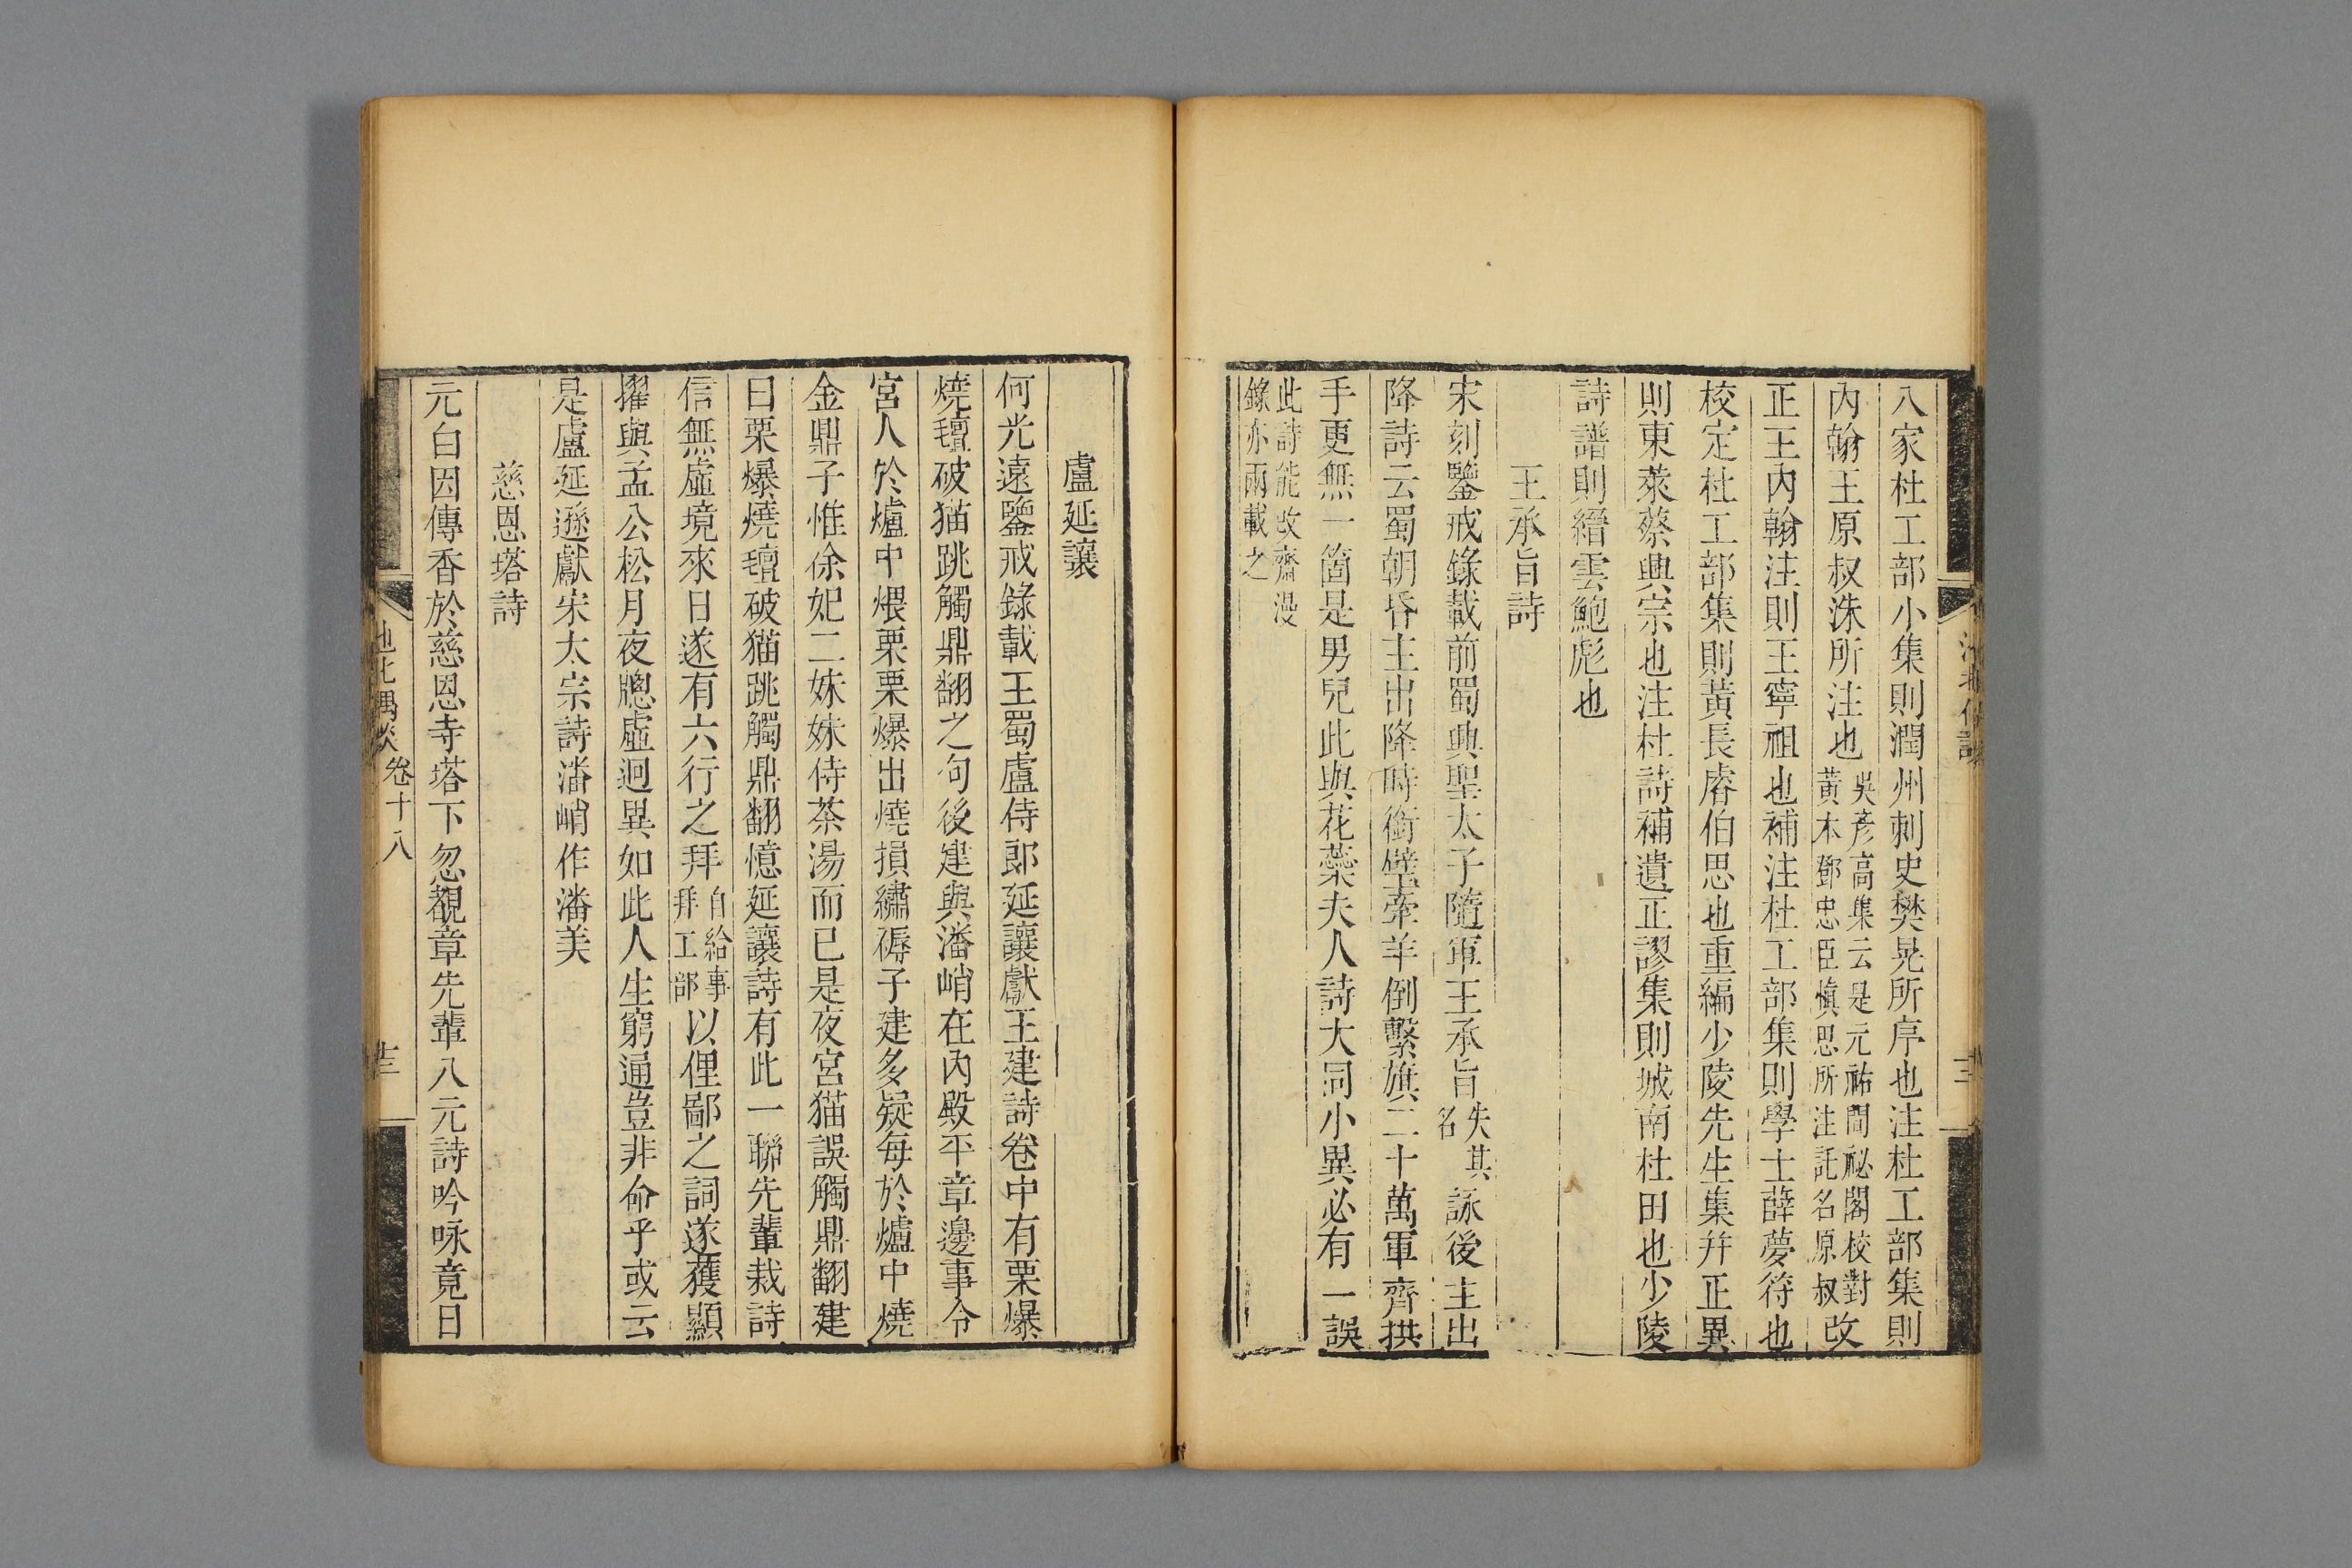 八家杜工部小集則潤州刺史樊晃所序也注杜工部集則
內翰王原叔洙所注也吳彥高集云是元祐間祕閣校對黃本鄧忠臣愼思所注託名原叔改
正王內翰注則王寧祖也補注杜工部集則學士薛夢符也
校定杜工部集則黃長睿伯思也重編少陵先生集幷正異
則東萊蔡興宗也注杜詩補遺正謬集則城南杜田也少陵
詩譜則縉雲鮑彪也
王承旨詩
宋刻鑒戒錄載前蜀興聖太子隨軍王承旨失其名詠後主出
降詩云蜀朝昏主出降時銜璧牽羊倒繫旗二十萬軍齊拱
手更無一箇是男兒此與花蕊夫人詩大同小異必有一誤
此詩能改齋漫
錄亦兩載之
盧延讓
何光遠鑒戒錄載王蜀盧侍郎延讓獻王建詩卷中有栗爆
燒氊破猫跳觸鼎翻之句後建與潘峭在內殿平章邊事令
宮人於爐中煨栗栗爆出燒損繡褥子建多疑每於爐中燒
金鼎子惟徐妃二姊妹侍茶湯而已是夜宮猫誤觸鼎翻建
曰栗爆燒氊破猫跳觸鼎翻憶延讓詩有此一聯先輩裁詩
信無虛境來日遂有六行之拜自給事拜工部以俚鄙之詞遂獲顯
擢與孟公松月夜牕虛迥異如此人生窮通豈非命乎或云
是盧延遜獻宋太宗詩潘峭作潘美
慈恩塔詩
元白因傳香於慈恩寺塔下忽觀章先輩八元詩吟咏竟日
池北偶談 卷十八 十三